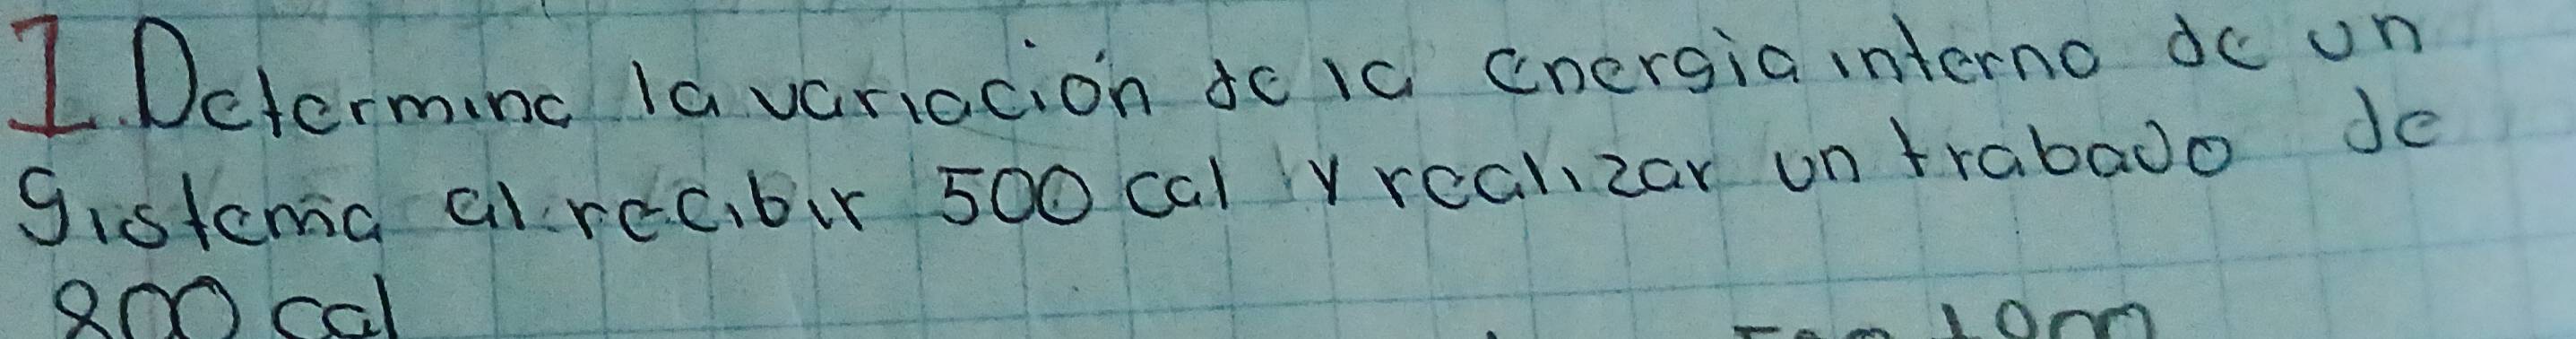 I. Determine la variación de la energia interna de un
sistema al recibir 500 cal y realizar un trabajo de
800 cal